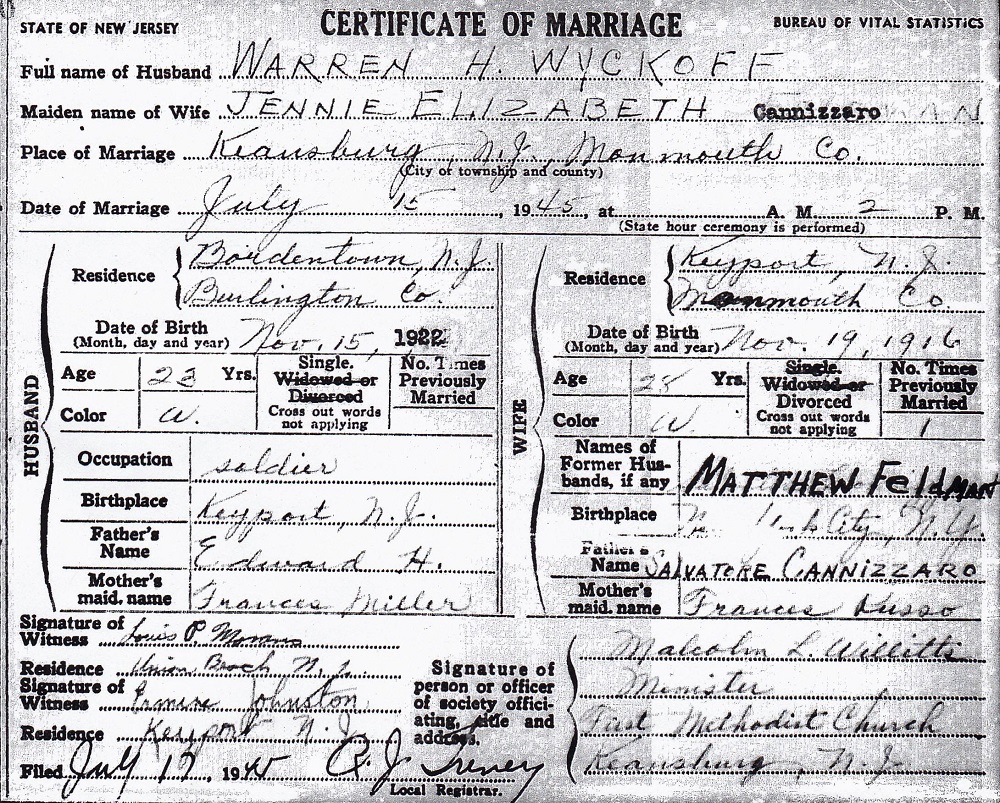 STATE OF NEW JERSEY CERTIFICATE OF MARRIAGE BUREAU OF VITAL STATISTICS
Full name of Husband WARREN H. WYCKOFF
Maiden name of Wife JENNIE ELIZABETH Cannizzaro
Place of Marriage Keansburg, N.J., Monmouth Co.
(City or township and county)
Date of Marriage July 15, 1945, at A. M. 2 P. M.
(State hour ceremony is performed)
HUSBAND
Residence Bordentown, N.J.
Burlington Co.
Date of Birth
(Month, day and year) Nov. 15, 1922
Age 23 Yrs.
Color W.
Single.
Widowed or
Divorced
Cross out words
not applying
No. Times
Previously
Married
Occupation soldier
Birthplace Keyport, N.J.
Father's
Name Edward H.
Mother's
maid. name Frances Miller
WIFE
Residence Keyport, N.J.
Monmouth Co
Date of Birth
(Month, day and year) Nov. 19, 1916
Age 28 Yrs.
Color W.
Single.
Widowed or
Divorced
Cross out words
not applying
No. Times
Previously
Married
1
Names of
Former Hus-
bands, if any MATTHEW FeldMAN
Birthplace City, N.Y.
Father's
Name SALVATORE CANNIZZARO
Mother's
maid. name Frances Russo
Signature of
Witness Louis P.
Residence Union Beach N.J.
Signature of
Witness Johnston
Residence Keyport N.J.
Filed July 17, 1945 R.J.
Local Registrar.
Signature of
person or officer
of society offici-
ating, title and
address.
Malcolm L. Willitts
Minister
First Methodist Church
Keansburg, N.J.